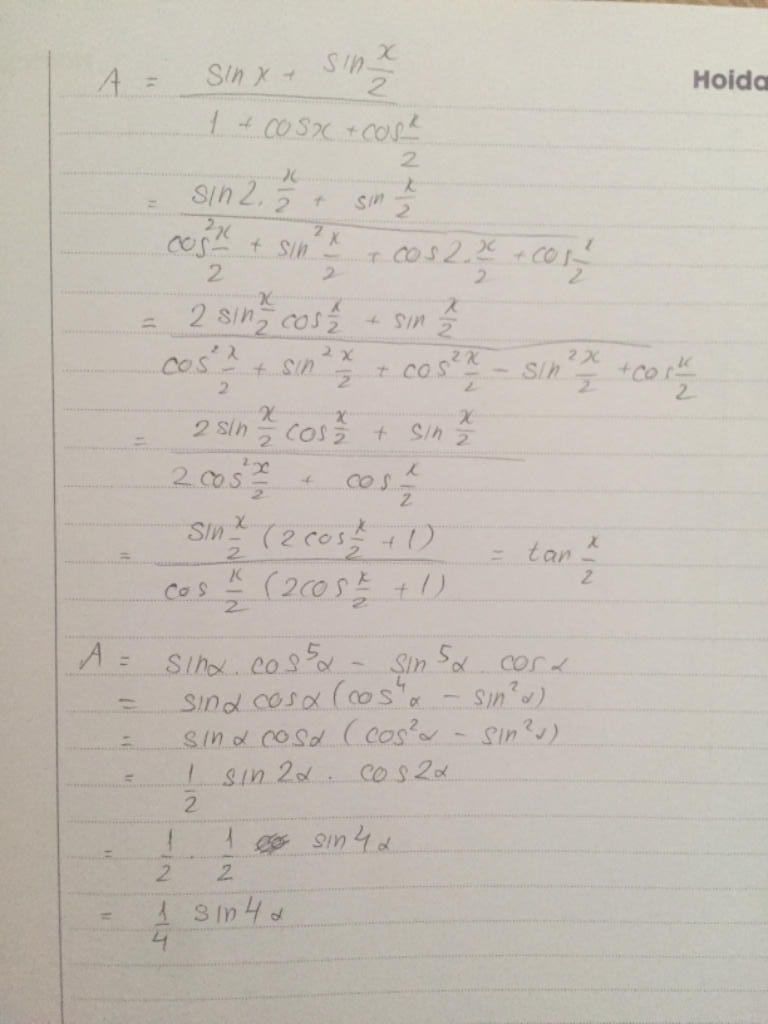 Hoida
A = (sin x + sin x/2) / (1 + cosx + cos x/2)
= (sin2. x/2 + sin x/2) / (cos² x/2 + sin² x/2 + cos2. x/2 + cos x/2)
= (2 sin x/2 cos x/2 + sin x/2) / (cos² x/2 + sin² x/2 + cos² x/2 - sin² x/2 + cos x/2)
= (2 sin x/2 cos x/2 + sin x/2) / (2 cos² x/2 + cos x/2)
= (sin x/2 (2 cos x/2 + 1)) / (cos x/2 (2cos x/2 + 1)) = tan x/2
A = sinα . cos⁵α - sin⁵α . cosα
= sinα cosα (cos⁴α - sin²α)
= sinα cosα (cos²α - sin²α)
= 1/2 sin2α . cos2α
= 1/2 . 1/2 sin4α
= 1/4 sin4α